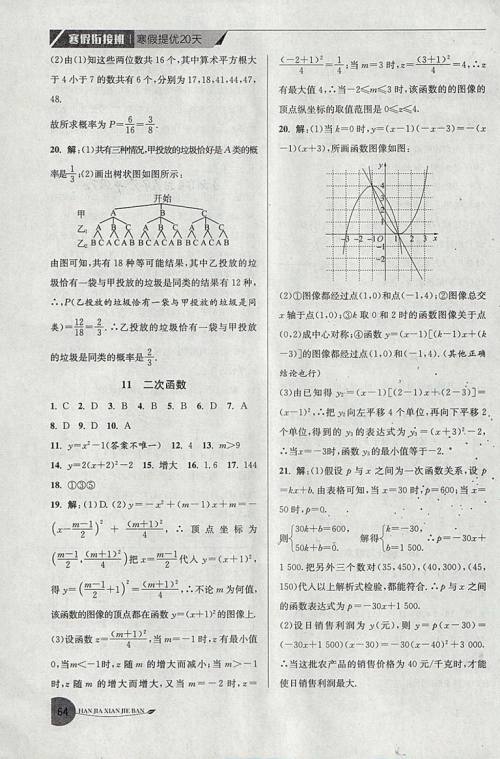 寒假衔接班 寒假提优20天
(2)由(1)知这些两位数共16个,其中算术平方根大
于4小于7的数共有6个,分别为17,18,41,44,47,
48.
故所求概率为P=6/16=3/8.
20. 解:(1)共有三种情况,甲投放的垃圾恰好是A类的概
率是1/3;(2)画出树状图如图所示:
开始
甲 A B C
乙₁ A B C A B C A B C
乙₂ B C A C A B B C A C A B B C A C A B
由图可知,共有18种等可能结果,其中乙投放的垃
圾恰有一袋与甲投放的垃圾是同类的结果有12种,
∴P(乙投放的垃圾恰有一袋与甲投放的垃圾是同类)
=12/18=2/3.∴乙投放的垃圾恰有一袋与甲投放
的垃圾是同类的概率是2/3.
11 二次函数
1. C 2. D 3. B 4. C 5. D 6. D 7. A
8. D 9. D 10. A
11. y=x²-1(答案不唯一) 12. 4 13. m>9
14. y=2(x+2)²-2 15. 增大 16. 1,6 17. 144
18. ①③⑤
19. 解:(1)D. (2)y=-x²+(m-1)x+m=-
(x-(m-1)/2)²+(m+1)²/4,∴顶点坐标为
((m-1)/2,(m+1)²/4)把x=(m-1)/2代入y=(x+1)²,
得y=((m-1)/2+1)²=(m+1)²/4,∴不论m为何值,
该函数的图像的顶点都在函数y=(x+1)²的图像上.
(3)设函数z=(m+1)²/4,当m=-1时,z有最小值
0,当m<-1时,z随m的增大而减小;当m>-
1时,z随m的增大而增大,又当m=-2时,z=
(-2+1)²/4=1/4;当m=3时,z=(3+1)²/4=4,∴z
有最大值4,∴当-2≤m≤3时,该函数的的图像的
顶点纵坐标的取值范围是0≤z≤4.
20. 解:(1)当k=0时,y=(x-1)(-x-3)=-(x
-1)(x+3),所画函数图像如图:
-3 -2 -1 0 1 2 3 x
(2)①图像都经过点(1,0)和点(-1,4);②图像总交
x轴于点(1,0);③k取0和2时的函数图像关于点
(0,2)成中心对称;④函数y=(x-1)[(k-1)x+(k
-3)]的图像都经过点(1,0)和(-1,4).(其他正确
结论也行)
(3)由已知得y₂=(x-1)[(2-1)x+(2-3)]=
(x-1)²,∴把y₂向左平移4个单位,再向下平移2
个单位,得到的y₃的表达式为y=(x+3)²-2,
∴当x=-3时,函数y₃的最小值等于-2.
21. 解:(1)假设p与x之间为一次函数关系,设p
=kx+b.由表格可知,当x=30时,p=600;当x=
50时,p=0.
则{30k+b=600, 50k+b=0, 解得{k=-30, b=1 500. ∴p=-30x+
1 500.把另外三个对数(35,450),(40,300),(45,
150)代入以上解析式检验,都能符合.∴p与x之间
的函数表达式为p=-30x+1 500.
(2)设日销售利润为y(元),则y=p(x-30)=
(-30x+1 500)(x-30)=-30(x-40)²+3 000.
∴当这批农产品的销售价格为40元/千克时,才能
使日销售利润最大.
64 HAN JIA XIAN JIE BAN